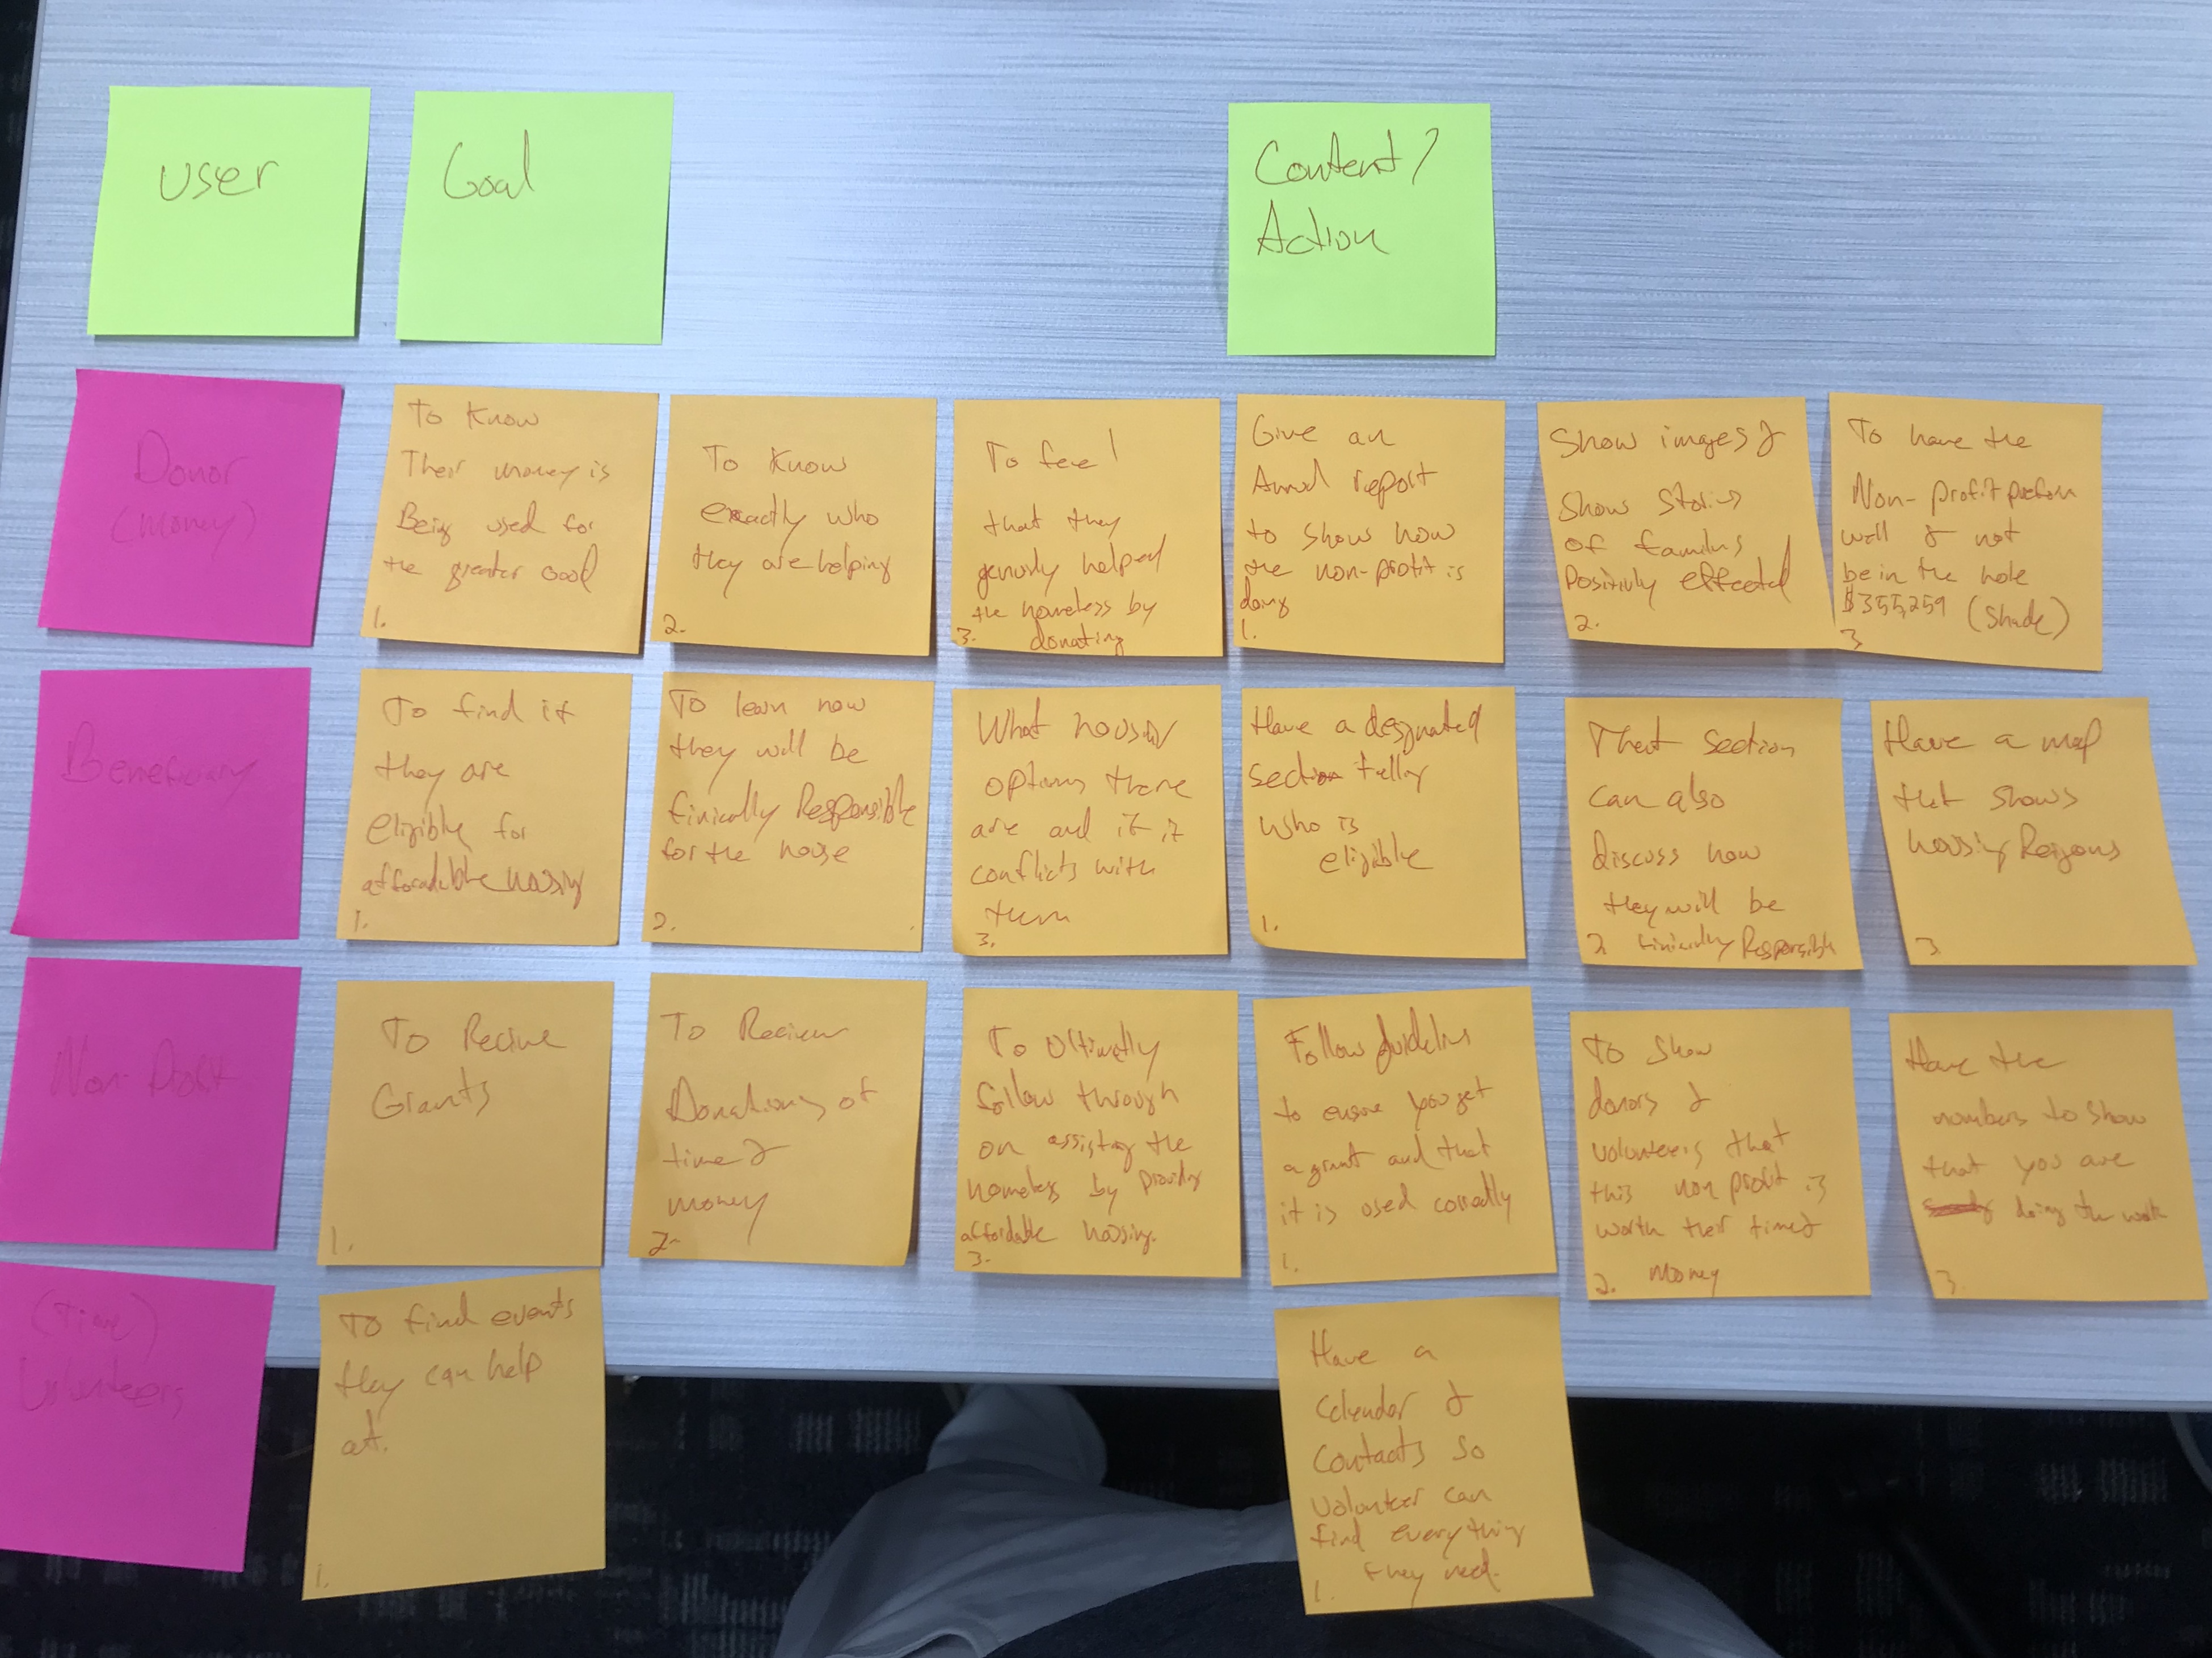 User
Goal
Content/
Action
Donor
(Money)
To Know
Their money is
Being used for
the greater Good
1.
To Know
exactly who
they are helping
2.
To feel
that they
genuily helped
the homeless by
3. donating
Give an
Annual report
to show how
the non-profit is
doing
1.
Show images &
Show Stories
of families
Positivly effected
2.
To have the
Non-profit preform
well & not
be in the hole
$355,259 (Shade)
3
Beneficiary
To find if
they are
eligible for
affordable housing
1.
To learn how
they will be
finically Responsible
for the house
2.
What housing
options there
are and if it
conflicts with
them
3.
Have a designated
section telling
who is
eligible
1.
That section
can also
discuss how
they will be
2 finically Responsible
Have a map
that shows
housing Reigons
3
Non-Profit
To Recive
Grants
1.
To Reciev
Donations of
time &
money
2.
To Oltimatly
follow through
on assisting the
homeless by providing
affordable housing.
3.
Follow guidelins
to ensure you get
a grant and that
it is used correctly
1.
To Show
donors &
volunteers that
this non profit is
worth their time &
2. Money
Have the
numbers to show
that you are
doing the work
3.
(Time)
Volunteers
To find events
they can help
at.
1.
Have a
Calendar &
Contacts so
volunteer can
find everything
1. they need.